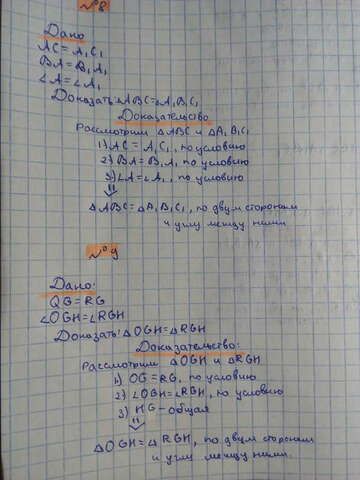 №8
Дано
AC = A₁C₁
BA = B₁A₁
∠A = ∠A₁
Доказать: △ABC = △A₁B₁C₁
Доказательство
Рассмотрим △ABC и △A₁B₁C₁
1) AC = A₁C₁, по условию
2) BA = B₁A₁ по условию
3) ∠A = ∠A₁, по условию
⇓
△ABC = △A₁B₁C₁, по двум сторонам
и углу между ними
№9
Дано:
OG = RG
∠OGH = ∠RGH
Доказать: △OGH = △RGH
Доказательство:
Рассмотрим △OGH и △RGH
1) OG = RG, по условию
2) ∠OGH = ∠RGH, по условию
3) HG – общая
⇓
△OGH = △RGH, по двум сторонам
и углу между ними.